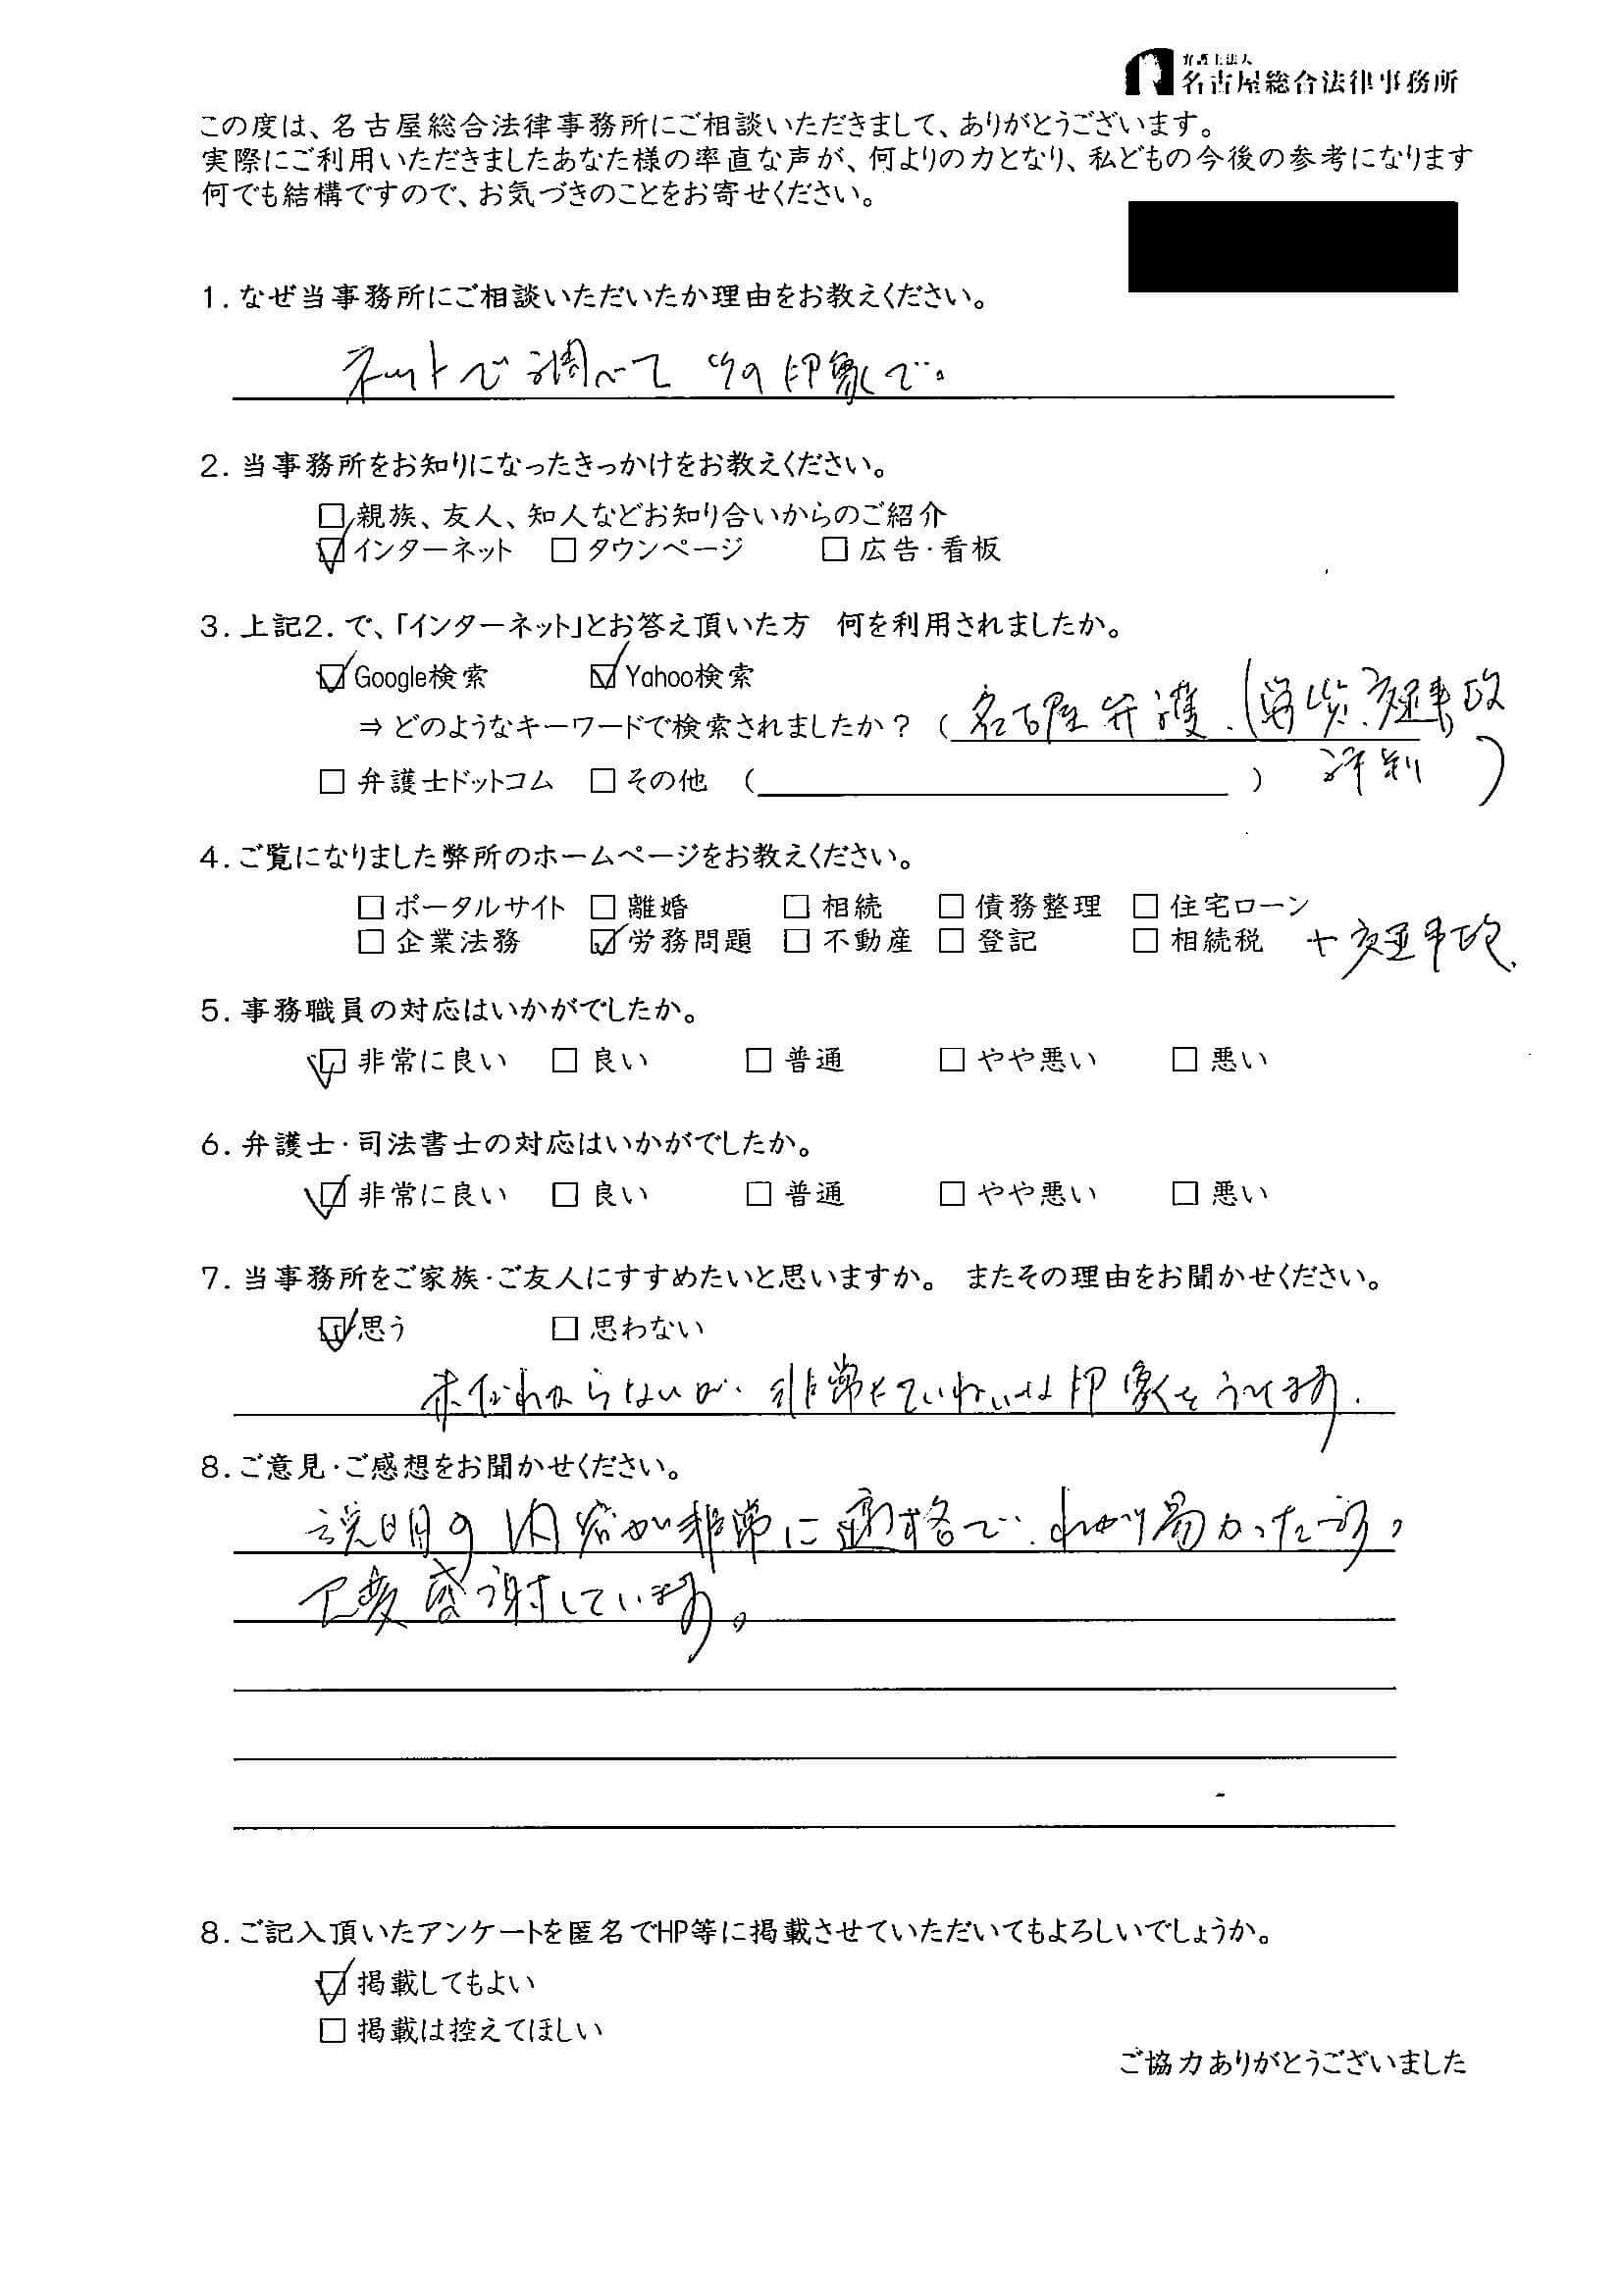 弁護士法人
名古屋総合法律事務所
この度は、名古屋総合法律事務所にご相談いただきまして、ありがとうございます。
実際にご利用いただきましたあなた様の率直な声が、何よりの力となり、私どもの今後の参考になります
何でも結構ですので、お気づきのことをお寄せください。
1. なぜ当事務所にご相談いただいたか理由をお教えください。
ネットで調べて その印象で。
2. 当事務所をお知りになったきっかけをお教えください。
□親族、友人、知人などお知り合いからのご紹介
☑インターネット □タウンページ □広告・看板
3. 上記2. で、「インターネット」とお答え頂いた方 何を利用されましたか。
☑Google検索 ☑Yahoo検索
⇒どのようなキーワードで検索されましたか？ (名古屋 弁護 (労災、交通事故
□弁護士ドットコム □その他 ( ) 評判 )
4. ご覧になりました弊所のホームページをお教えください。
□ポータルサイト □離婚 □相続 □債務整理 □住宅ローン
□企業法務 ☑労務問題 □不動産 □登記 □相続税 + 交通事故
5. 事務職員の対応はいかがでしたか。
☑非常に良い □良い □普通 □やや悪い □悪い
6. 弁護士・司法書士の対応はいかがでしたか。
☑非常に良い □良い □普通 □やや悪い □悪い
7. 当事務所をご家族・ご友人にすすめたいと思いますか。 またその理由をお聞かせください。
☑思う □思わない
まだわからないが、非常にていねいな印象をうけます。
8. ご意見・ご感想をお聞かせください。
説明の内容が非常に適格で、わかり易かった
大変感謝しています。
8. ご記入頂いたアンケートを匿名でHP等に掲載させていただいてもよろしいでしょうか。
☑掲載してもよい
□掲載は控えてほしい
ご協力ありがとうございました